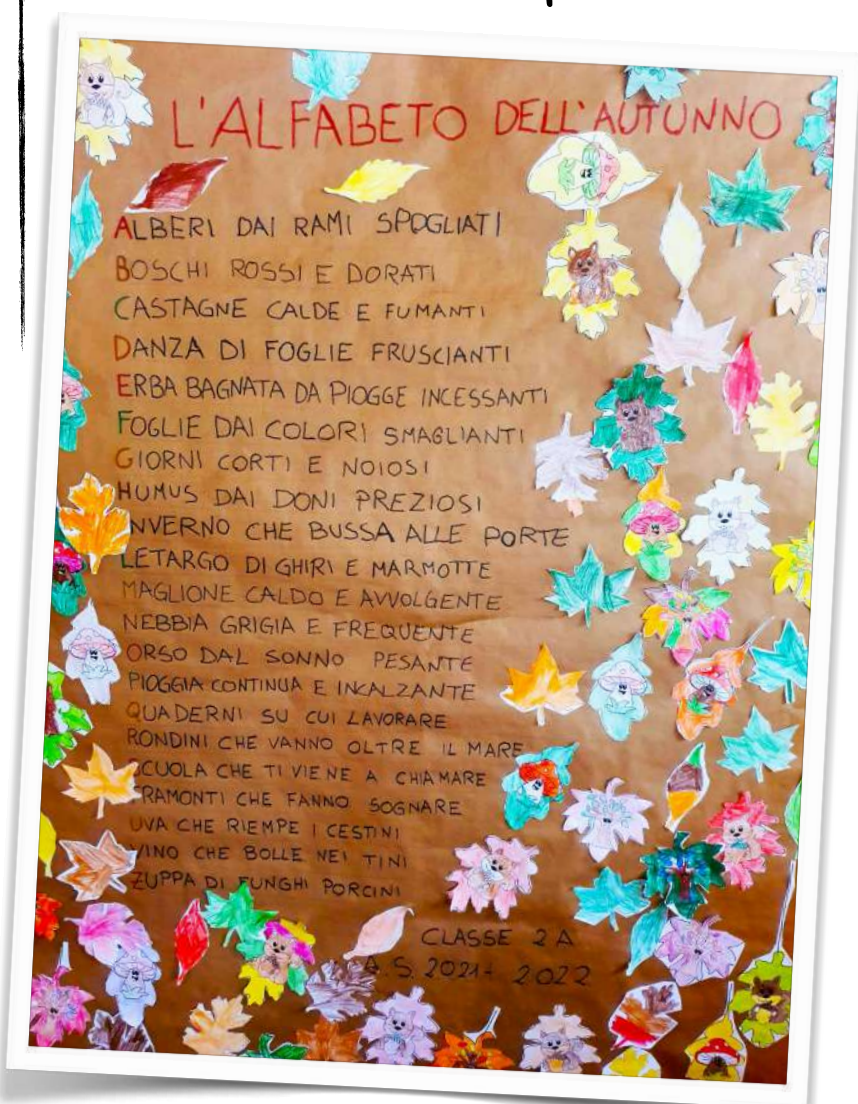 L'ALFABETO DELL'AUTUNNO
ALBERI DAI RAMI SPOGLIATI
BOSCHI ROSSI E DORATI
CASTAGNE CALDE E FUMANTI
DANZA DI FOGLIE FRUSCIANTI
ERBA BAGNATA DA PIOGGE INCESSANTI
FOGLIE DAI COLORI SMAGLIANTI
GIORNI CORTI E NOIOSI
HUMUS DAI DONI PREZIOSI
INVERNO CHE BUSSA ALLE PORTE
LETARGO DI GHIRI E MARMOTTE
MAGLIONE CALDO E AVVOLGENTE
NEBBIA GRIGIA E FREQUENTE
ORSO DAL SONNO PESANTE
PIOGGIA CONTINUA E INCALZANTE
QUADERNI SU CUI LAVORARE
RONDINI CHE VANNO OLTRE IL MARE
SCUOLA CHE TI VIENE A CHIAMARE
TRAMONTI CHE FANNO SOGNARE
UVA CHE RIEMPE I CESTINI
VINO CHE BOLLE NEI TINI
ZUPPA DI FUNGHI PORCINI
CLASSE 2A
A.S. 2021-2022